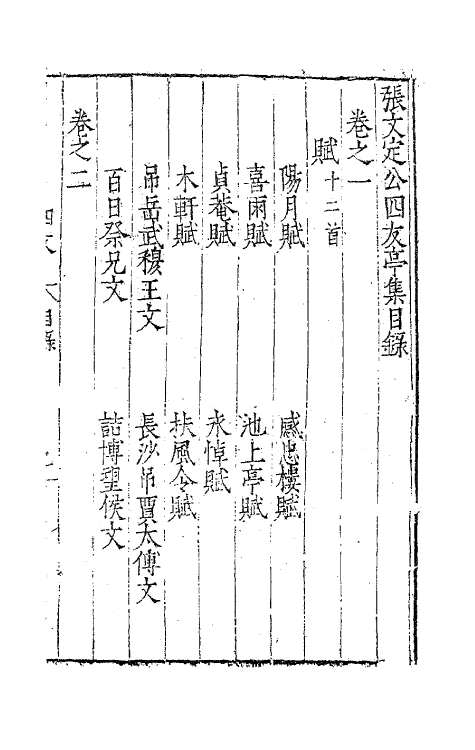 張文定公四友亭集目錄
卷之一
賦十二首
陽月賦　感忠樓賦
喜雨賦　池上亭賦
貞菴賦　永悼賦
木軒賦　扶風令賦
吊岳武穆王文　長沙吊賈太傅文
百日祭兄文　詰博望侯文
卷之二